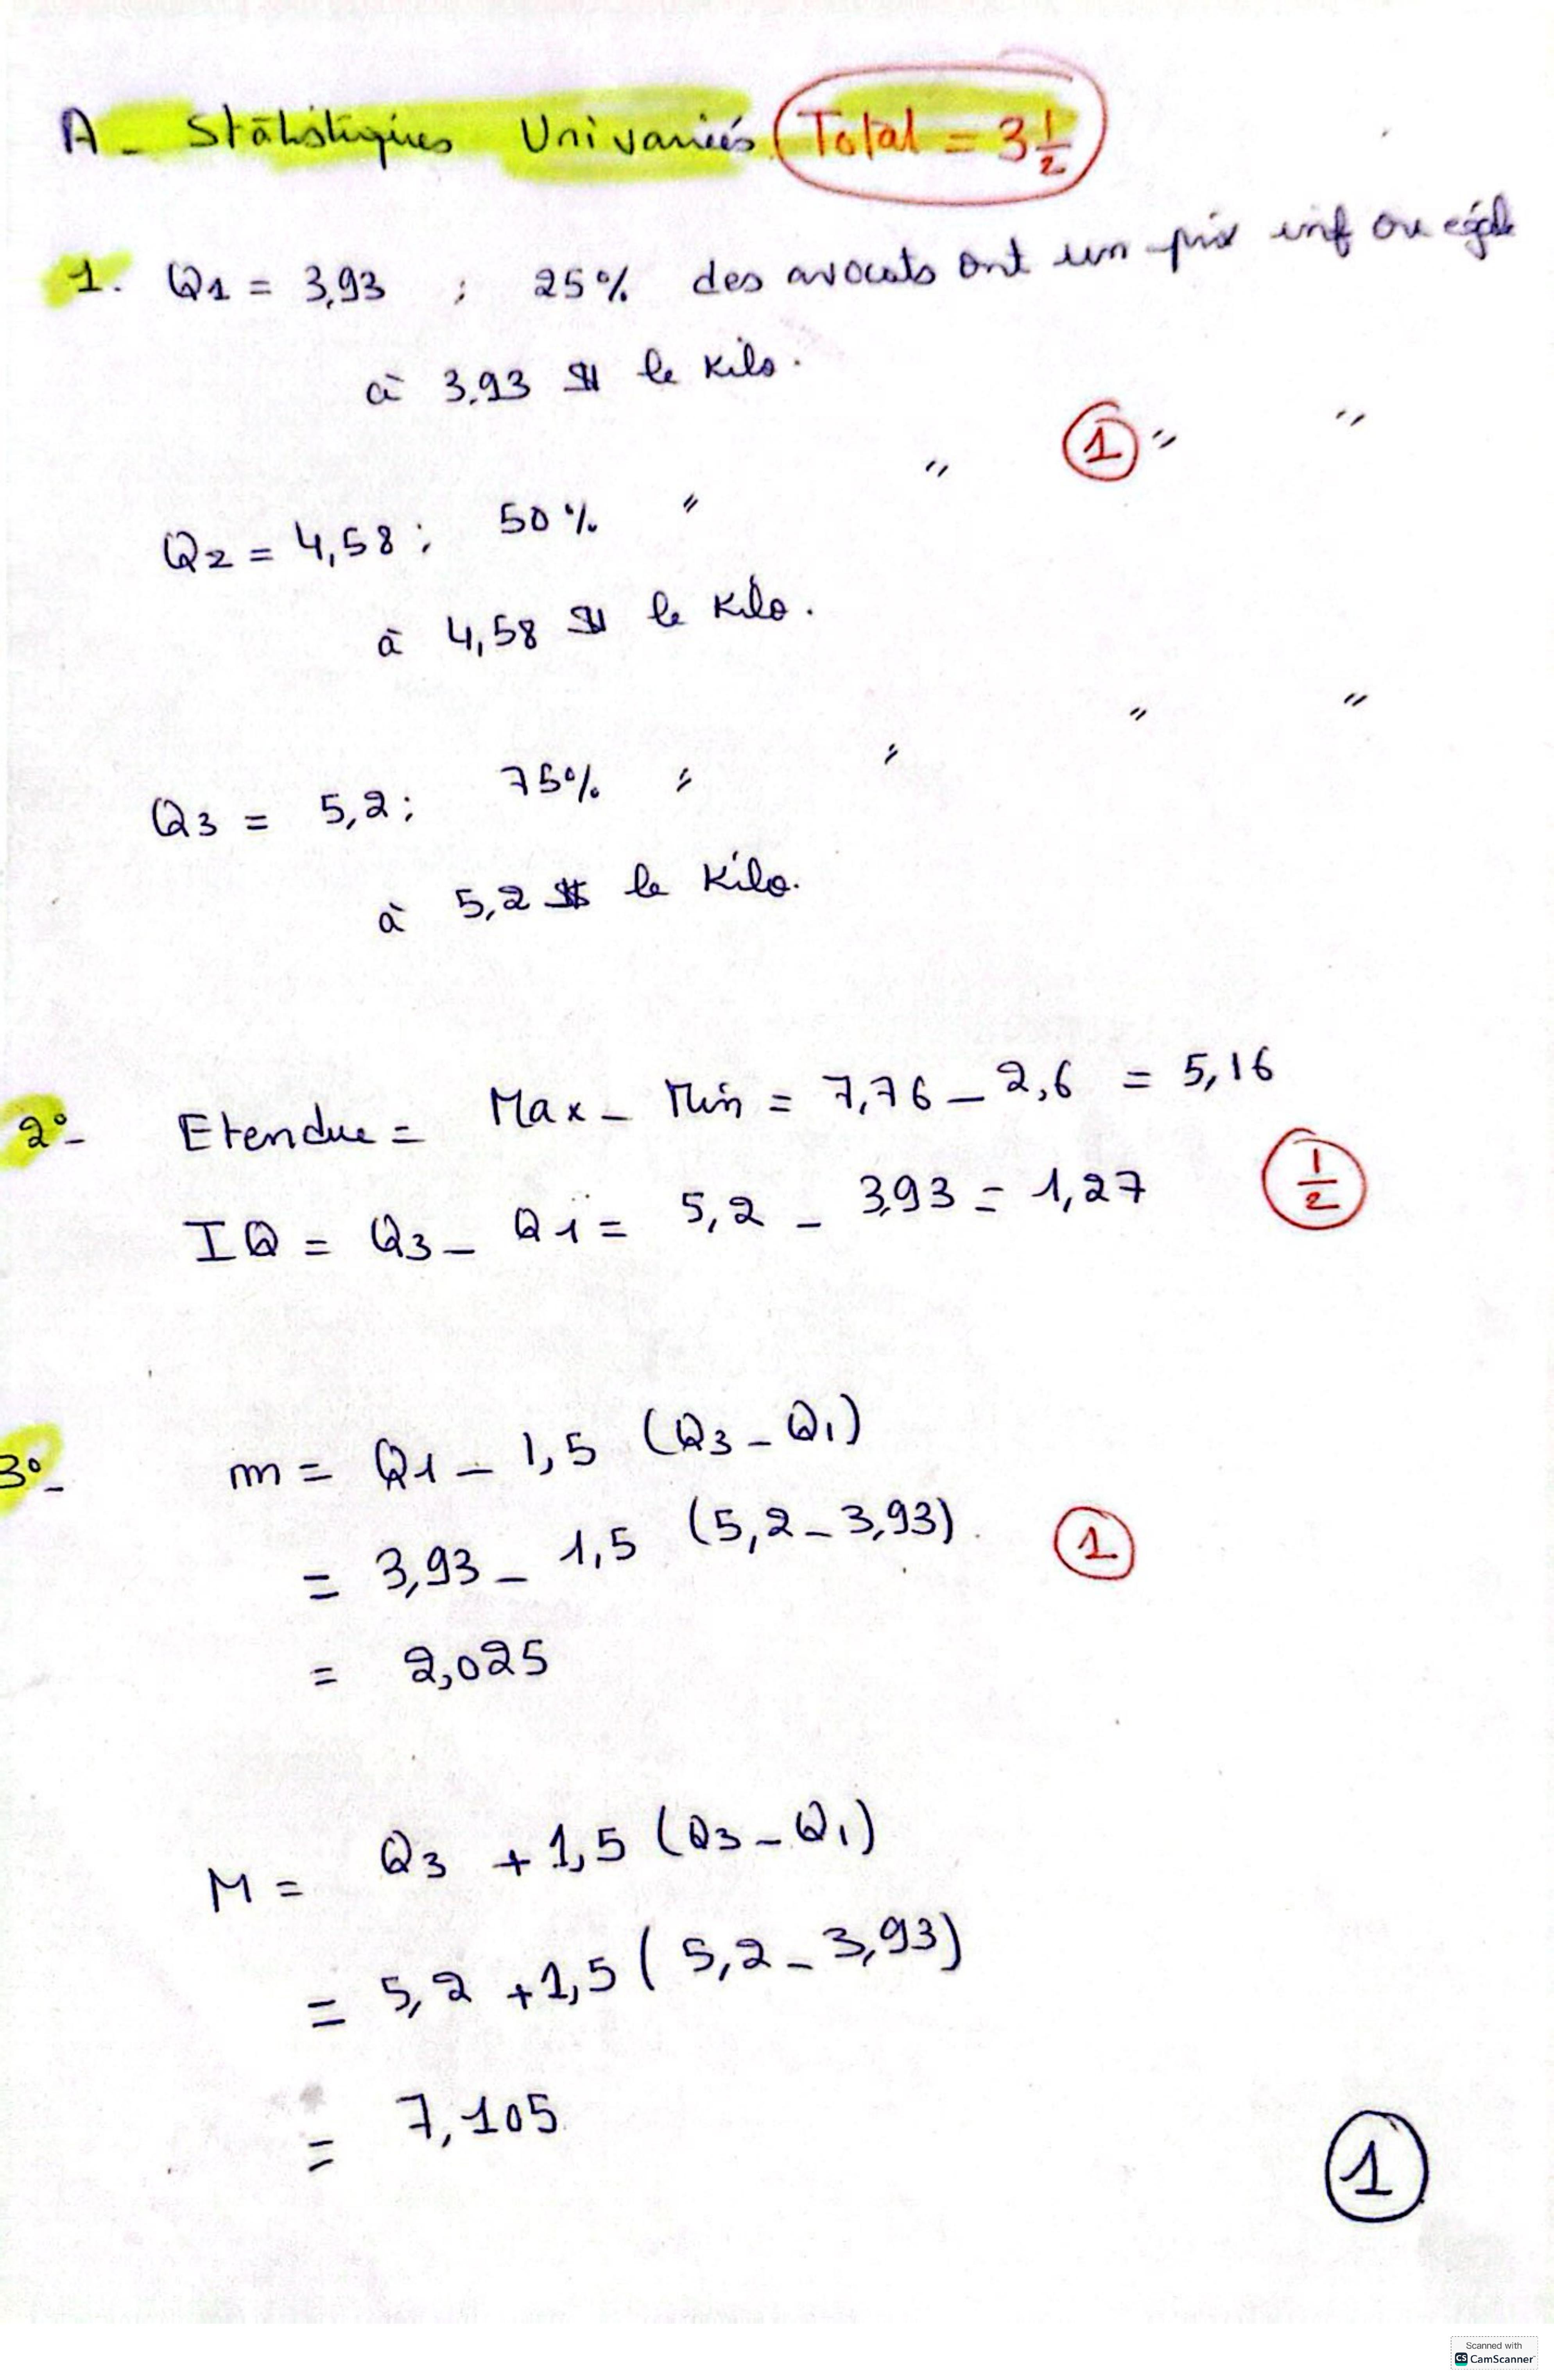 A - Statistiques Univariées Total = 3 1/2
1. Q1 = 3,93 ; 25% des avocats ont un prix inf ou égal
à 3,93 $ le kilo.
Q2 = 4,58 ; 50% " " ① " "
à 4,58 $ le kilo.
Q3 = 5,2 ; 75% " " " "
à 5,2 $ le kilo.
2°- Etendue = Max - Min = 7,76 - 2,6 = 5,16
IQ = Q3 - Q1 = 5,2 - 3,93 = 1,27 1/2
3°- m = Q1 - 1,5 (Q3 - Q1)
= 3,93 - 1,5 (5,2 - 3,93) ①
= 2,025
M = Q3 + 1,5 (Q3 - Q1)
= 5,2 + 1,5 (5,2 - 3,93)
= 7,105
①
Scanned with
CS CamScanner